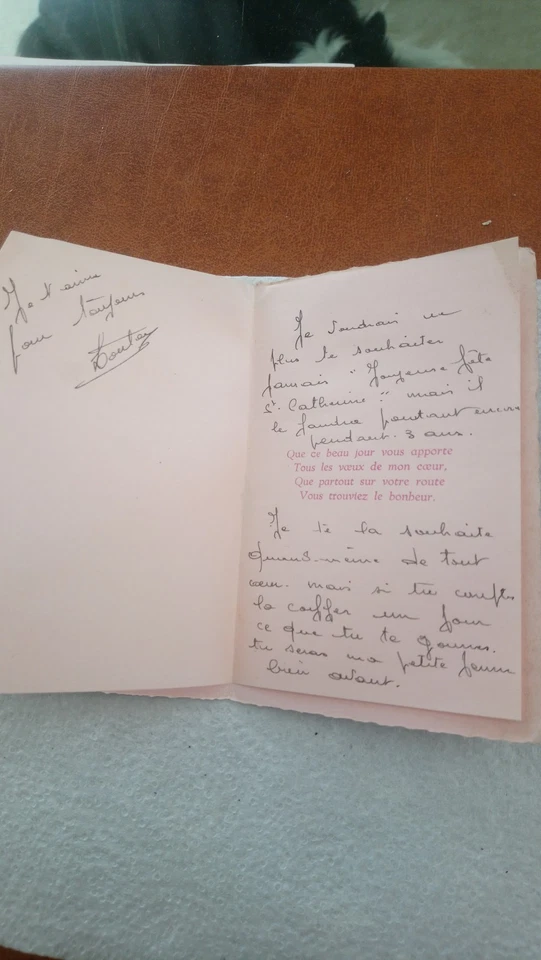 Je t'aime
pour toujours
Je voudrais ne
plus te souhaiter
jamais "Joyeuse fête
St. Catherine" mais il
le faudra pourtant encore
pendant 3 ans.
Que ce beau jour vous apporte
Tous les vœux de mon cœur,
Que partout sur votre route
Vous trouviez le bonheur.
Je te la souhaite
quand-même de tout
cœur. mais si tu comptes
la coiffer un jour
ce que tu te gourres.
tu seras ma petite femme
bien avant.